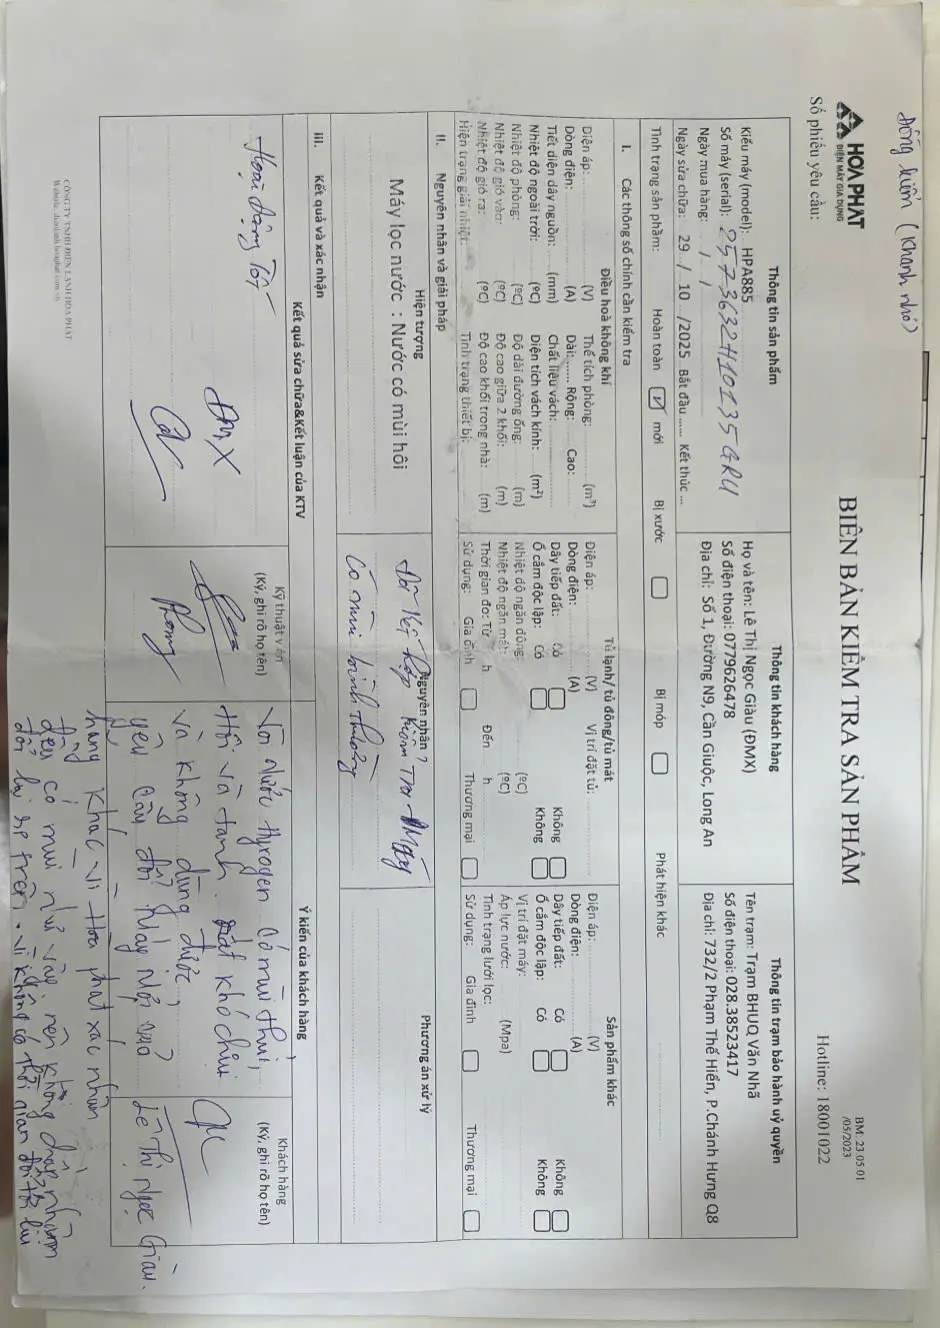 Đồng kiểm (Khanh nhỏ)
HOA PHAT
ĐIỆN MÁY GIA DỤNG
Số phiếu yêu cầu:
BIÊN BẢN KIỂM TRA SẢN PHẨM
BM: 23.05.01
/05/2023
Hotline: 18001022
Thông tin sản phẩm
Kiểu máy (model): HPA885
Số máy (serial): 2573632H10135GRU
Ngày mua hàng: / /
Ngày sửa chữa: 29 / 10 /2025 Bắt đầu ...... Kết thúc ...
Thông tin khách hàng
Họ và tên: Lê Thị Ngọc Giàu (ĐMX)
Số điện thoại: 0779626478
Địa chỉ: Số 1, Đường N9, Cần Giuộc, Long An
Thông tin trạm bảo hành uỷ quyền
Tên trạm: Trạm BHUQ Văn Nhã
Số điện thoại: 028.38523417
Địa chỉ: 732/2 Phạm Thế Hiển, P.Chánh Hưng Q8
Tình trạng sản phẩm: Hoàn toàn mới Bị xước Bị móp Phát hiện khác
I. Các thông số chính cần kiểm tra
Điều hoà không khí
Điện áp: (V) Thể tích phòng: (m³)
Dòng điện: (A) Dài: ...... Rộng: Cao:
Tiết diện dây nguồn: (mm) Chất liệu vách:
Nhiệt độ ngoài trời: (ºC) Diện tích vách kính: (m²)
Nhiệt độ phòng: (ºC) Độ dài đường ống: (m)
Nhiệt độ gió vào: (ºC) Độ cao giữa 2 khối: (m)
Nhiệt độ gió ra: (ºC) Độ cao khối trong nhà: (m)
Hiện trạng giải nhiệt: Tình trạng thiết bị:
Tủ lạnh/ tủ đông/tủ mát
Điện áp: (V) Vị trí đặt tủ:
Dòng điện: (A)
Dây tiếp đất: Có Không
Ổ cắm độc lập: Có Không
Nhiệt độ ngăn đông: (ºC)
Nhiệt độ ngăn mát: (ºC)
Thời gian đo: Từ h Đến h
Sử dụng: Gia đình Thương mại
Sản phẩm khác
Điện áp: (V)
Dòng điện: (A)
Dây tiếp đất: Có Không
Ổ cắm độc lập: Có Không
Vị trí đặt máy:
Áp lực nước: (Mpa)
Tình trạng lưới lọc:
Sử dụng: Gia đình Thương mại
II. Nguyên nhân và giải pháp
Hiện tượng
Nguyên nhân
Phương án xử lý
Máy lọc nước : Nước có mùi hôi
Kiểm Tra Máy
Có mùi bình thường
III. Kết quả và xác nhận
Kết quả sửa chữa&Kết luận của KTV
Hoạt động Tốt
ĐMX
Kỹ thuật viên
(Ký, ghi rõ họ tên)
Phong
Ý kiến của khách hàng
Vòi nước Hyrogen có mùi thúi,
Hôi và tanh. khó chịu
và không dùng được.
yêu cầu đổi máy mới
hàng khác vì Hoà phát xác nhận
đều có mùi như vậy. nên không chấp nhận
đổi lại sp trên. vì không có thời gian đổi
Khách hàng
(Ký, ghi rõ họ tên)
Lê Thị Ngọc Giàu.
CÔNG TY TNHH ĐIỆN LẠNH HÒA PHÁT